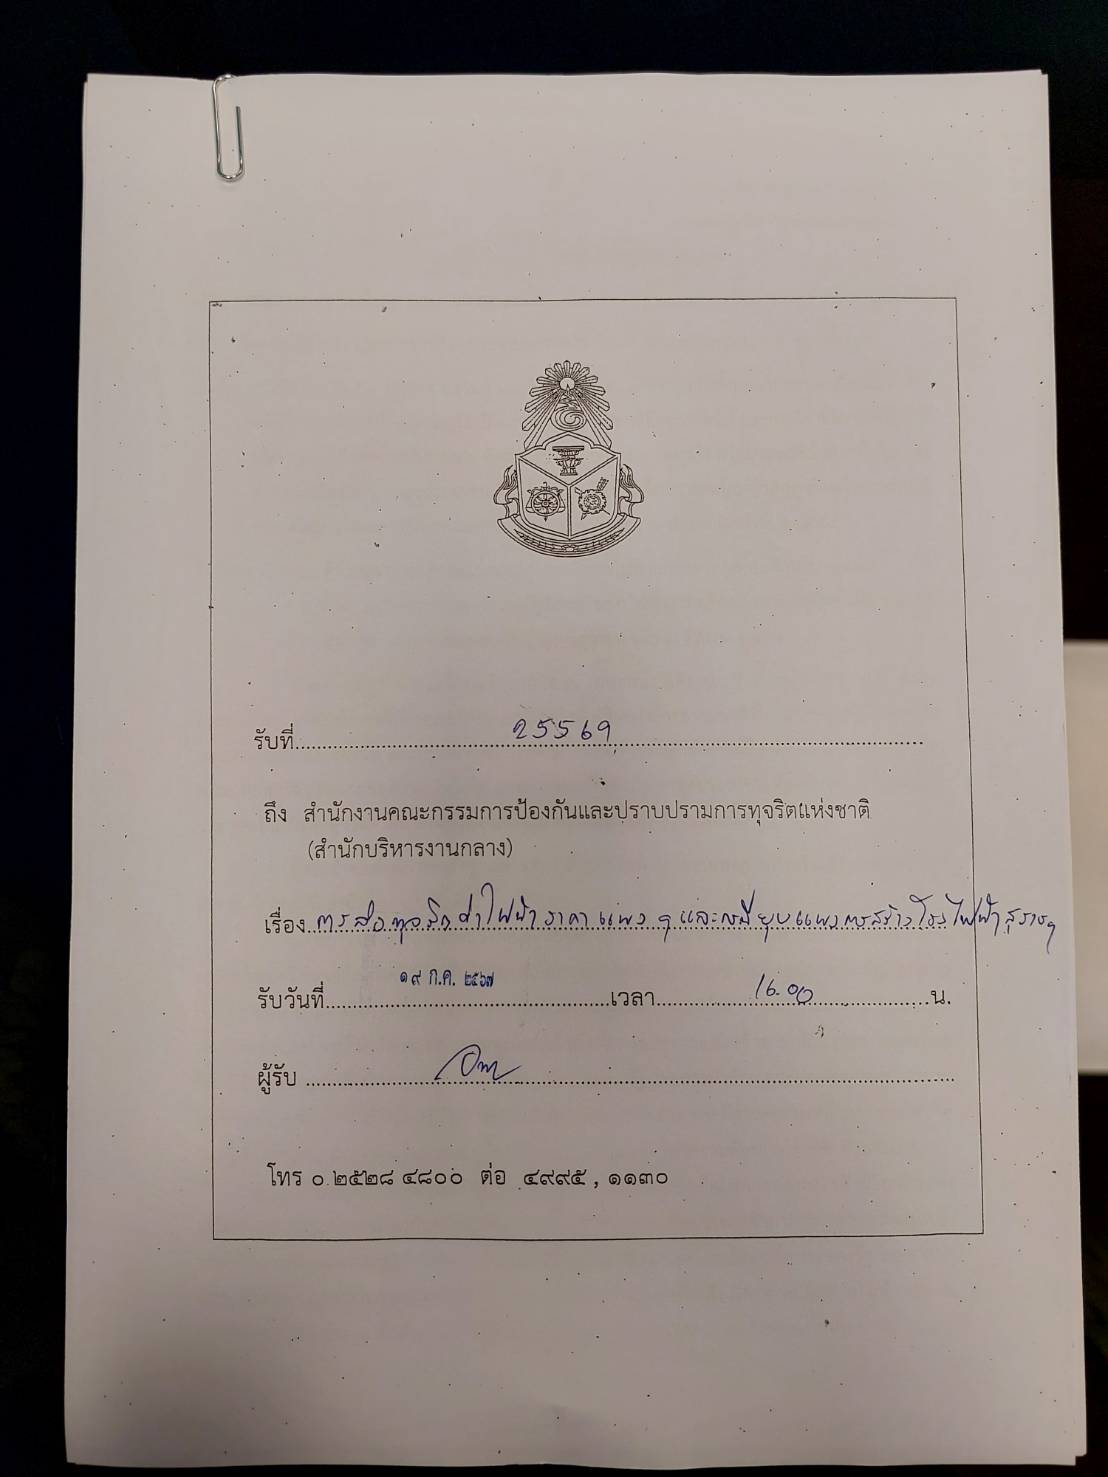 รับที่ 25569
ถึง สำนักงานคณะกรรมการป้องกันและปราบปรามการทุจริตแห่งชาติ
(สำนักบริหารงานกลาง)
เรื่อง การส่อทุจริตค่าไฟฟ้าราคาแพง ๆ และกรณียุบแผนการสร้างโรงไฟฟ้าสุราษฯ
รับวันที่ ๑๙ ก.ค. ๒๕๖๗ เวลา 16.00 น.
ผู้รับ
โทร ๐ ๒๕๒๘ ๔๘๐๐ ต่อ ๔๙๙๕ , ๑๑๓๐